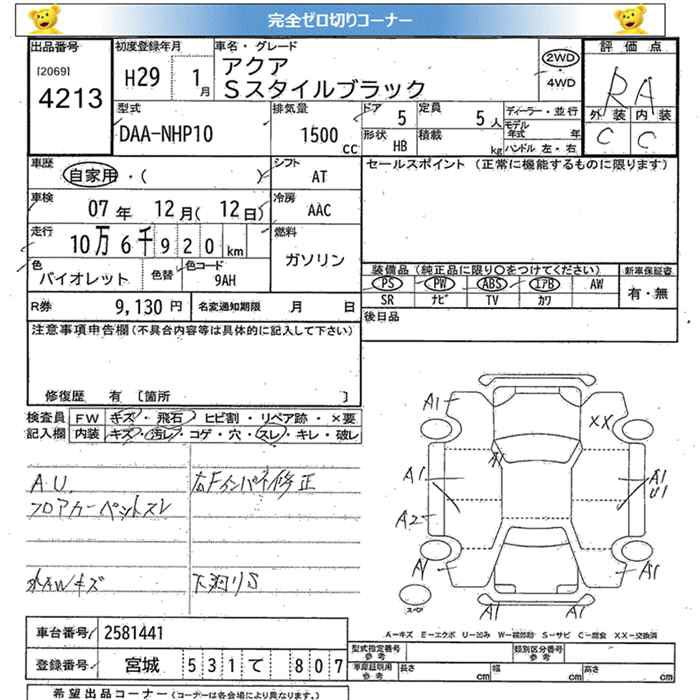 完全ゼロ切りコーナー
出品番号
[2069]
4213
初度登録年月
H29 1月
車名・グレード
アクア
Sスタイルブラック
2WD
4WD
評価点
RA
外装 内装
C C
型式
DAA-NHP10
排気量
1500 cc
ドア 5
定員 5人
形状 HB
積載 kg
ディーラー・並行
モデル年式 年
ハンドル 左・右
車歴
自家用・( )
シフト
AT
車検
07年 12月(12日)
冷房
AAC
走行
10万6千920km
燃料
ガソリン
色
バイオレット
色替
色コード
9AH
セールスポイント (正常に機能するものに限ります)
装備品(純正品に限り○をつけてください)
新車保証書
PS PW ABS エアB AW
有・無
SR ナビ TV カワ
R券 9,130円
名変通知期限 月 日
後日品
注意事項申告欄(不具合内容等は具体的に記入して下さい)
修復歴 有 [箇所 ]
検査員 FW キズ・飛石・ヒビ割・リペア跡・×要
記入欄 内装 キズ・汚レ・コゲ・穴・スレ・キレ・破レ
A.U.
フロアカーペットスレ
右Fインパネ修正
AWキズ
下廻りS
A1
XX
A1
A1
A2
A1
A1
A1
A1
スペア
A-キズ E-エクボ U-凹み W-補修跡 S-サビ C-腐食 XX-交換済
車台番号 2581441
登録番号 宮城 531て 807
型式指定番号 参考
類別区分番号 参考
車庫証明用 参考
長さ cm 幅 cm 高さ cm
希望出品コーナー(コーナーは各会場により異なります。)